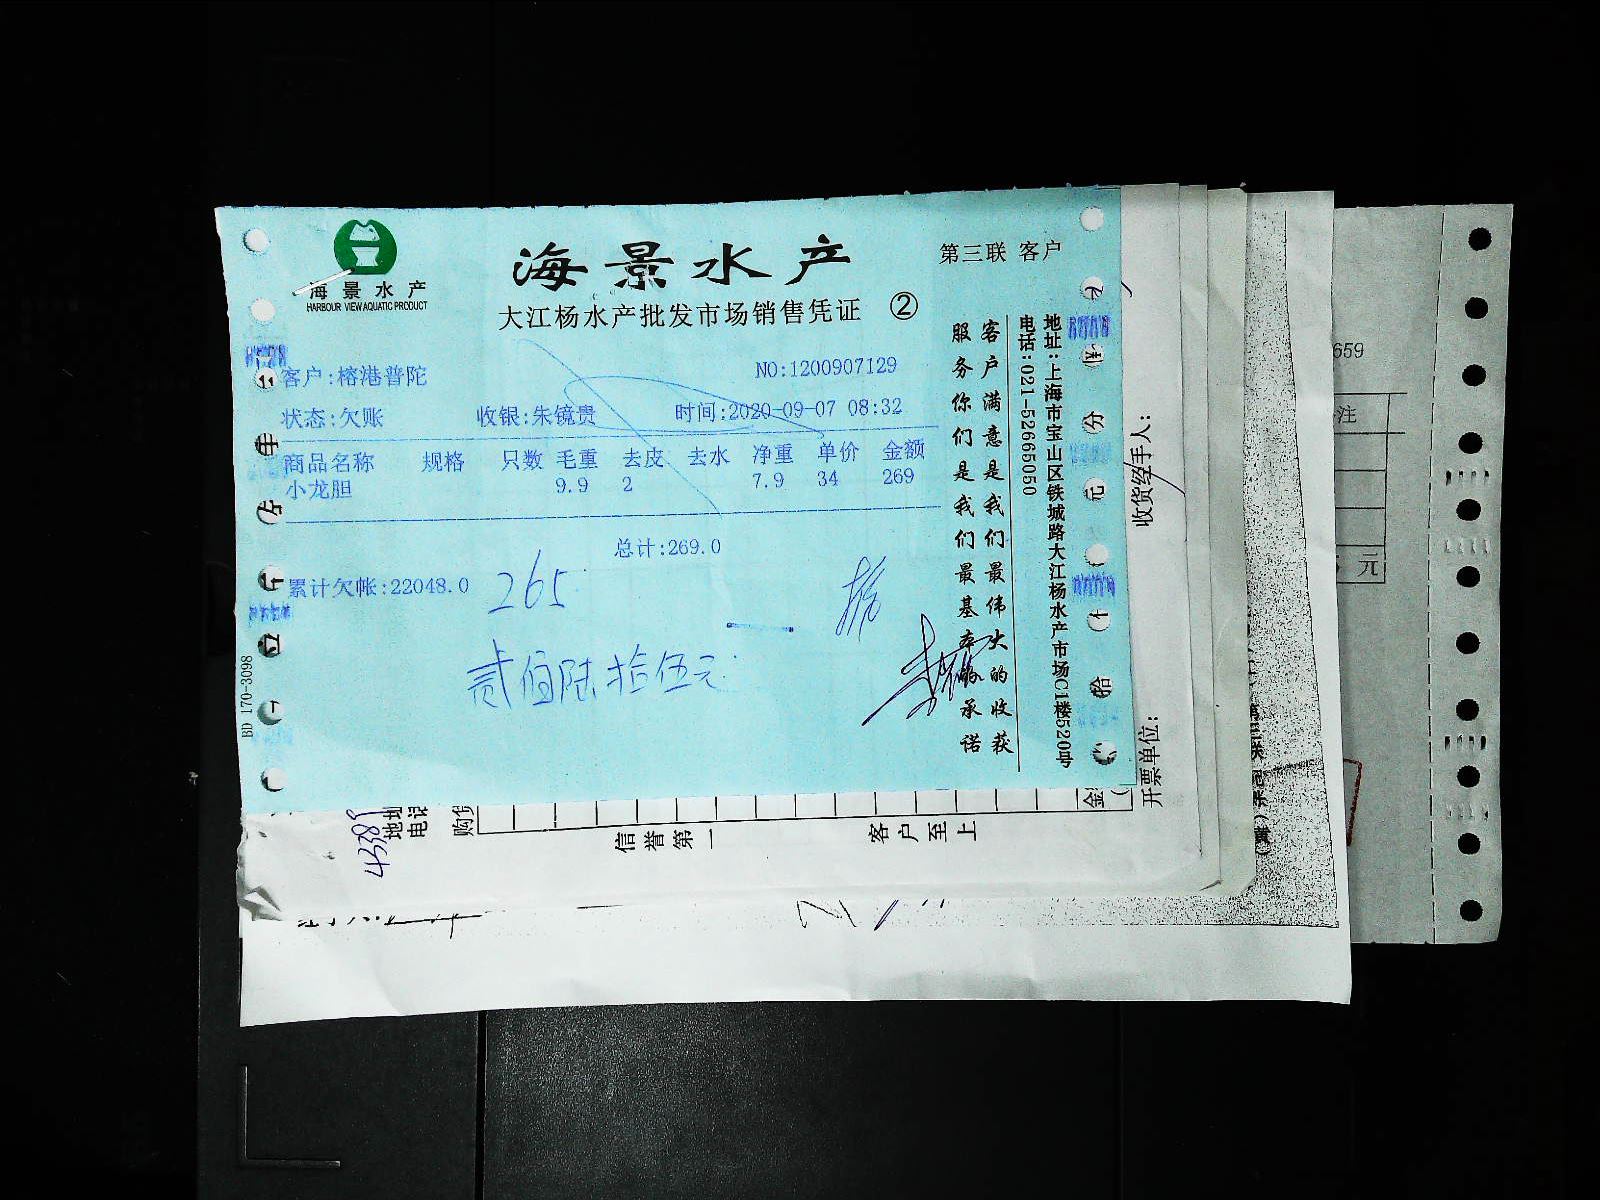 海景水产
HARBOUR VIEW AQUATIC PRODUCT
海景水产
大江杨水产批发市场销售凭证 ②
第三联 客户
客户:榕港普陀
NO:1200907129
状态:欠账 收银:朱镜贵 时间:2020-09-07 08:32
商品名称 规格 只数 毛重 去皮 去水 净重 单价 金额
小龙胆 9.9 2 7.9 34 269
总计:269.0
累计欠帐:22048.0
265
贰佰陆拾伍元
客户满意是我们最伟大的收获
服务你们是我们最基本的承诺
地址:上海市宝山区铁城路大江杨水产市场C1楼520号
电话:021-52665050
BD 170-3098
收货经手人:
开票单位:
43389
地址
电话
购货
信誉第一
客户至上
金
659
注
元